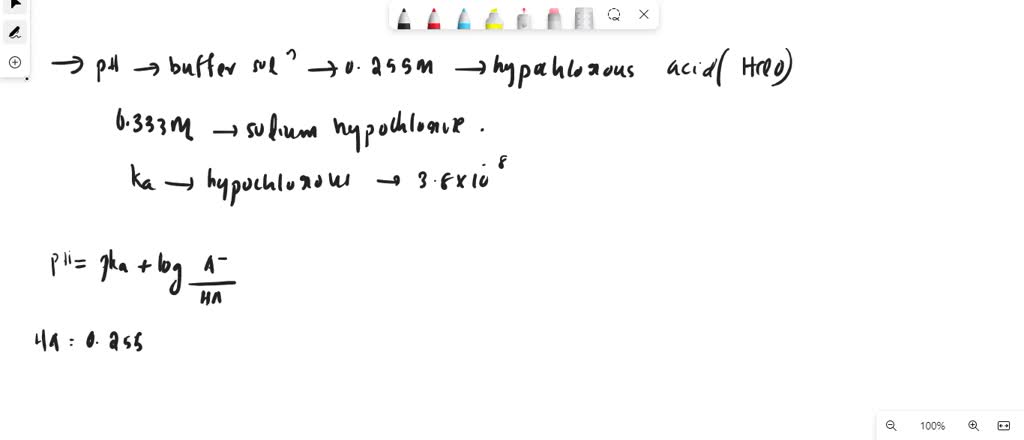 → pH → buffer sol^n → 0.255M → hypochlorous acid (HClO)
0.333M → sodium hypochlorite.
ka → hypochlorous → 3.8×10^-8
pH = pka + log A⁻/HA
HA = 0.255
100%